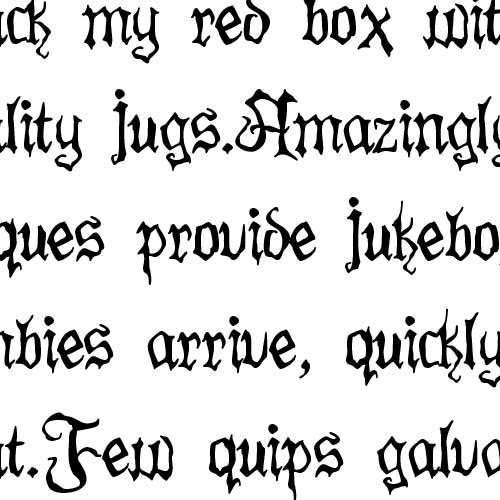 ck my red box wit
lity jugs.Amazingly
ques provide jukebo
bies arrive, quickly
t.Few quips galvo